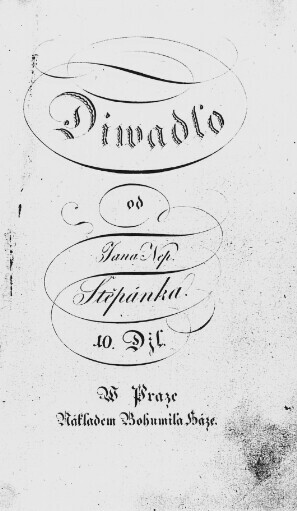 Diwadlo
od
Jana Nep.
Štěpánka.
10. Djl.
W Praze
Nákladem Bohumila Háze.